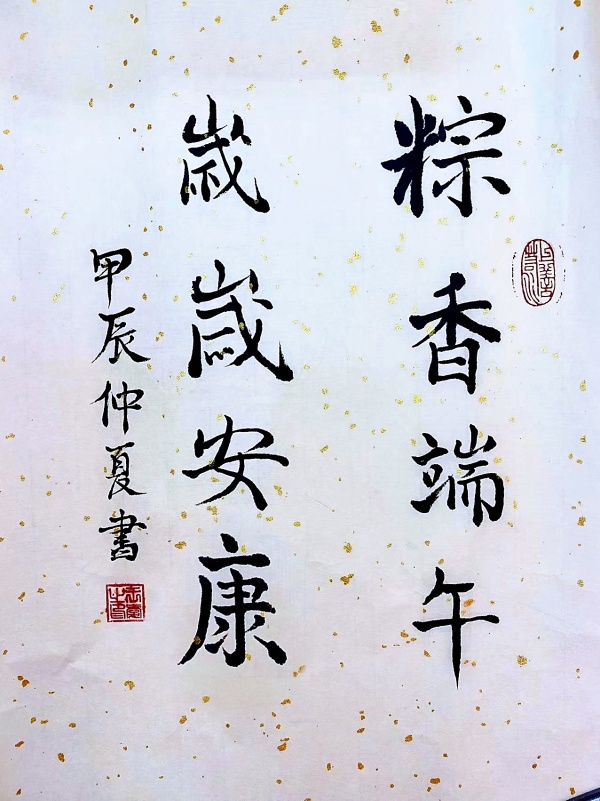 粽香端午
歲歲安康
甲辰仲夏書